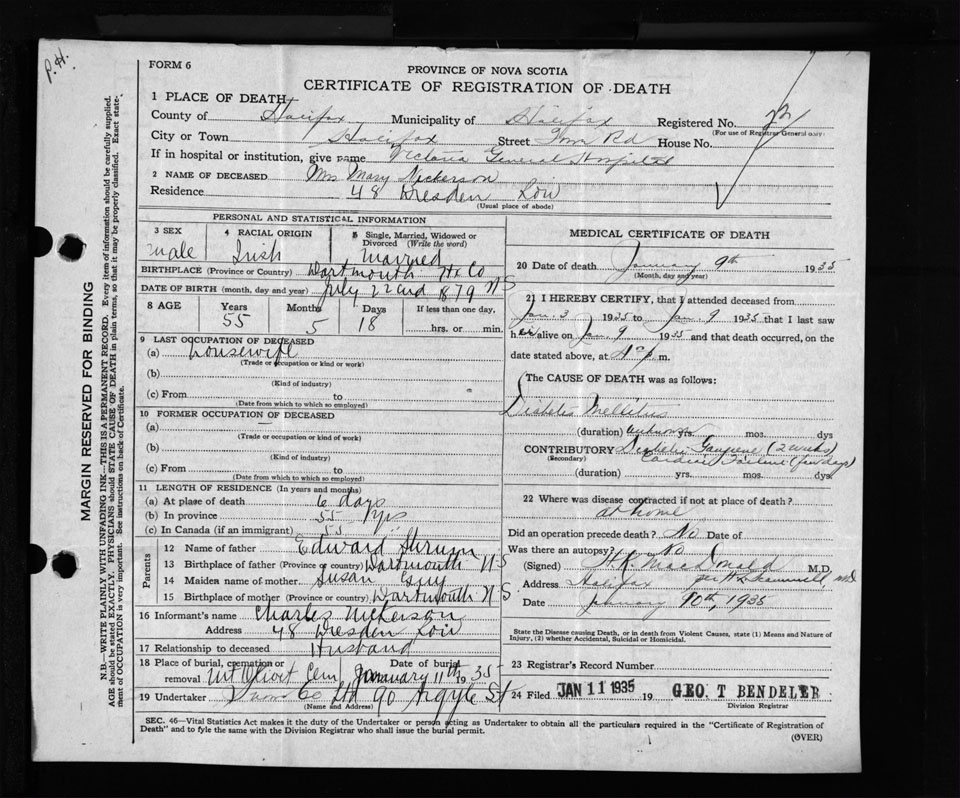 P.H.
FORM 6
PROVINCE OF NOVA SCOTIA
CERTIFICATE OF REGISTRATION OF DEATH
1 PLACE OF DEATH
County of Halifax Municipality of Halifax Registered No. 22
(For use of Registrar General only)
City or Town Halifax Street Tower Rd House No.
If in hospital or institution, give name Victoria General Hospital
2 NAME OF DECEASED Mrs Mary Nickerson
Residence 48 Dresden Row
(Usual place of abode)
PERSONAL AND STATISTICAL INFORMATION
3 SEX 4 RACIAL ORIGIN 5 Single, Married, Widowed or Divorced (Write the word)
male Irish Married
BIRTHPLACE (Province or Country) Dartmouth Hx Co
DATE OF BIRTH (month, day and year) July 22nd 1879 N S
8 AGE Years Months Days If less than one day,
55 5 18 hrs. or min.
9 LAST OCCUPATION OF DECEASED
(a) housewife
(Trade or occupation or kind or work)
(b)
(Kind of industry)
(c) From to
(Date from which to which so employed)
10 FORMER OCCUPATION OF DECEASED
(a)
(Trade or occupation or kind of work)
(b)
(Kind of industry)
(c) From to
(Date from which to which so employed)
11 LENGTH OF RESIDENCE (In years and months)
(a) At place of death 6 days
(b) In province 55 Yrs
(c) In Canada (if an immigrant) 55
Parents
12 Name of father Edward
13 Birthplace of father (Province or country) Dartmouth N-S
14 Maiden name of mother Susan Guy
15 Birthplace of mother (Province or country) Dartmouth N-S
16 Informant's name Charles Nickerson
Address 48 Dresden Row
17 Relationship to deceased Husband
18 Place of burial, cremation or removal Mt Olivet Cem Date of burial January 11th 1935
19 Undertaker Snow Co Ltd 90 Argyle St
(Name and Address)
MEDICAL CERTIFICATE OF DEATH
20 Date of death January 9th 1935
(Month, day and year)
21 I HEREBY CERTIFY, that I attended deceased from
Jan. 3 1935 to Jan. 9 1935 that I last saw
her alive on Jan. 9 1935 and that death occurred, on the
date stated above, at p.m.
The CAUSE OF DEATH was as follows:
Diabetes Mellitus
(duration) unknown yrs. mos. dys
CONTRIBUTORY Diabetic Gangrene (2 weeks)
(Secondary) Cardiac Failure (few days)
(duration) yrs. mos. dys.
22 Where was disease contracted if not at place of death?
at home
Did an operation precede death? No Date of
Was there an autopsy? No
(Signed) H.K. MacDonald M.D.
Address Halifax per
Date January 10th, 1935
State the Disease causing Death, or in death from Violent Causes, state (1) Means and Nature of Injury, (2) whether Accidental, Suicidal or Homicidal.
23 Registrar's Record Number
24 Filed JAN 11 1935 19 GEO. T BENDELER
Division Registrar
SEC. 46—Vital Statistics Act makes it the duty of the Undertaker or person acting as Undertaker to obtain all the particulars required in the "Certificate of Registration of
Death" and to fyle the same with the Division Registrar who shall issue the burial permit.
(OVER)
MARGIN RESERVED FOR BINDING
N.B.—WRITE PLAINLY WITH UNFADING INK—THIS IS A PERMANENT RECORD. Every item of information should be carefully supplied.
AGE should be stated EXACTLY. PHYSICIANS should STATE CAUSE OF DEATH in plain terms, so that it may be properly classified. Exact statement of OCCUPATION is very important. See instructions on back of Certificate.